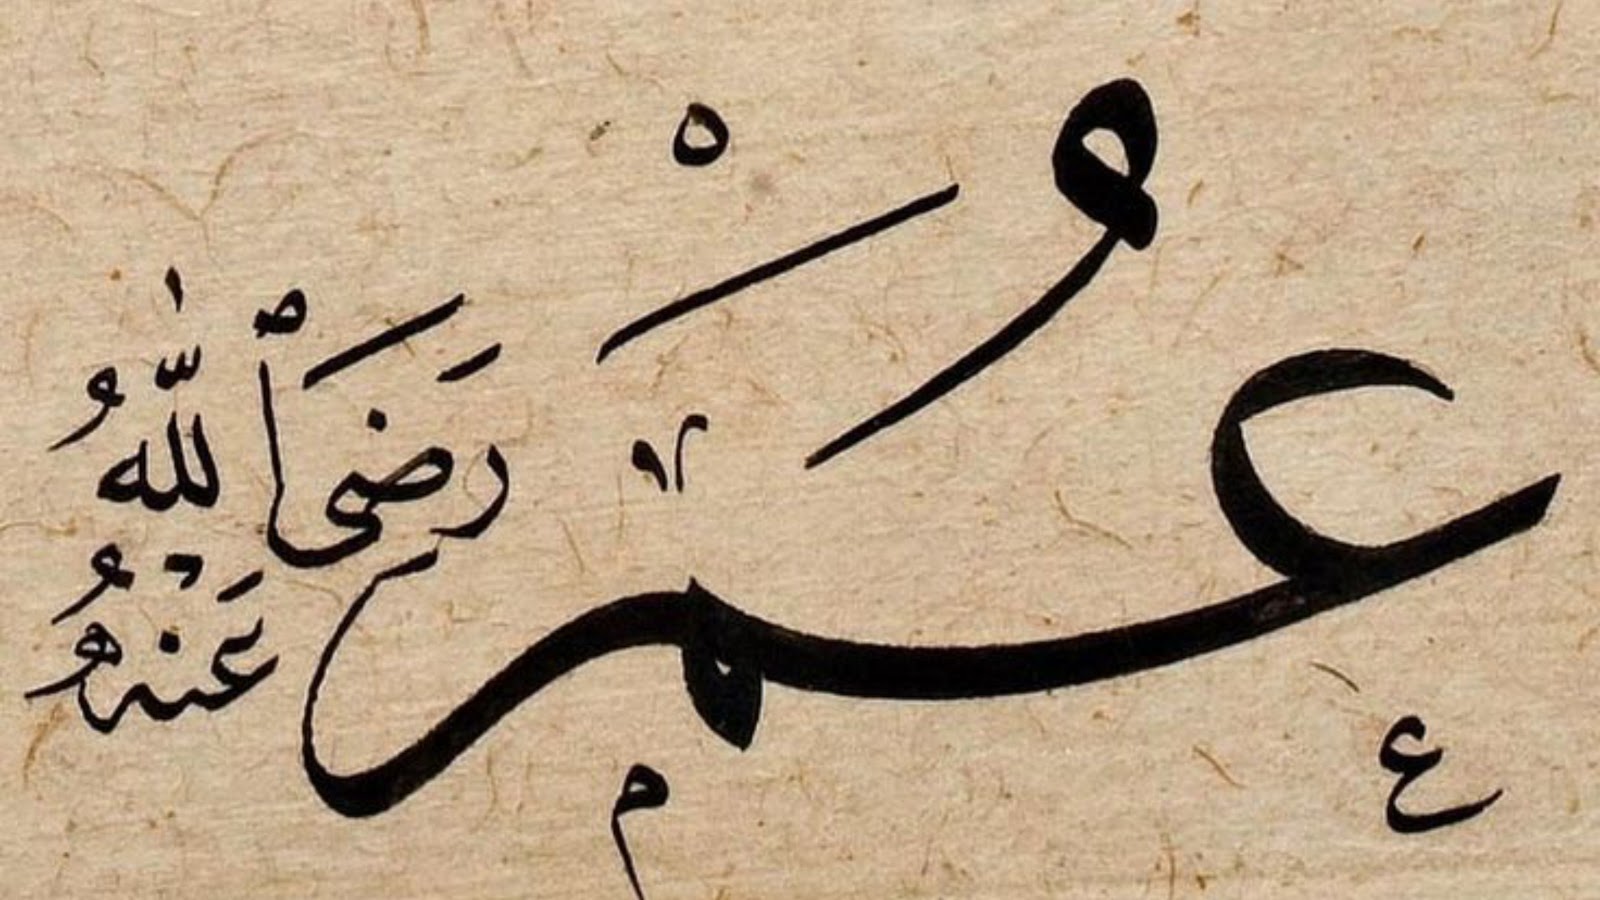 عُمَرْ
رَضِىَ ٱللّٰهُ عَنْهُ